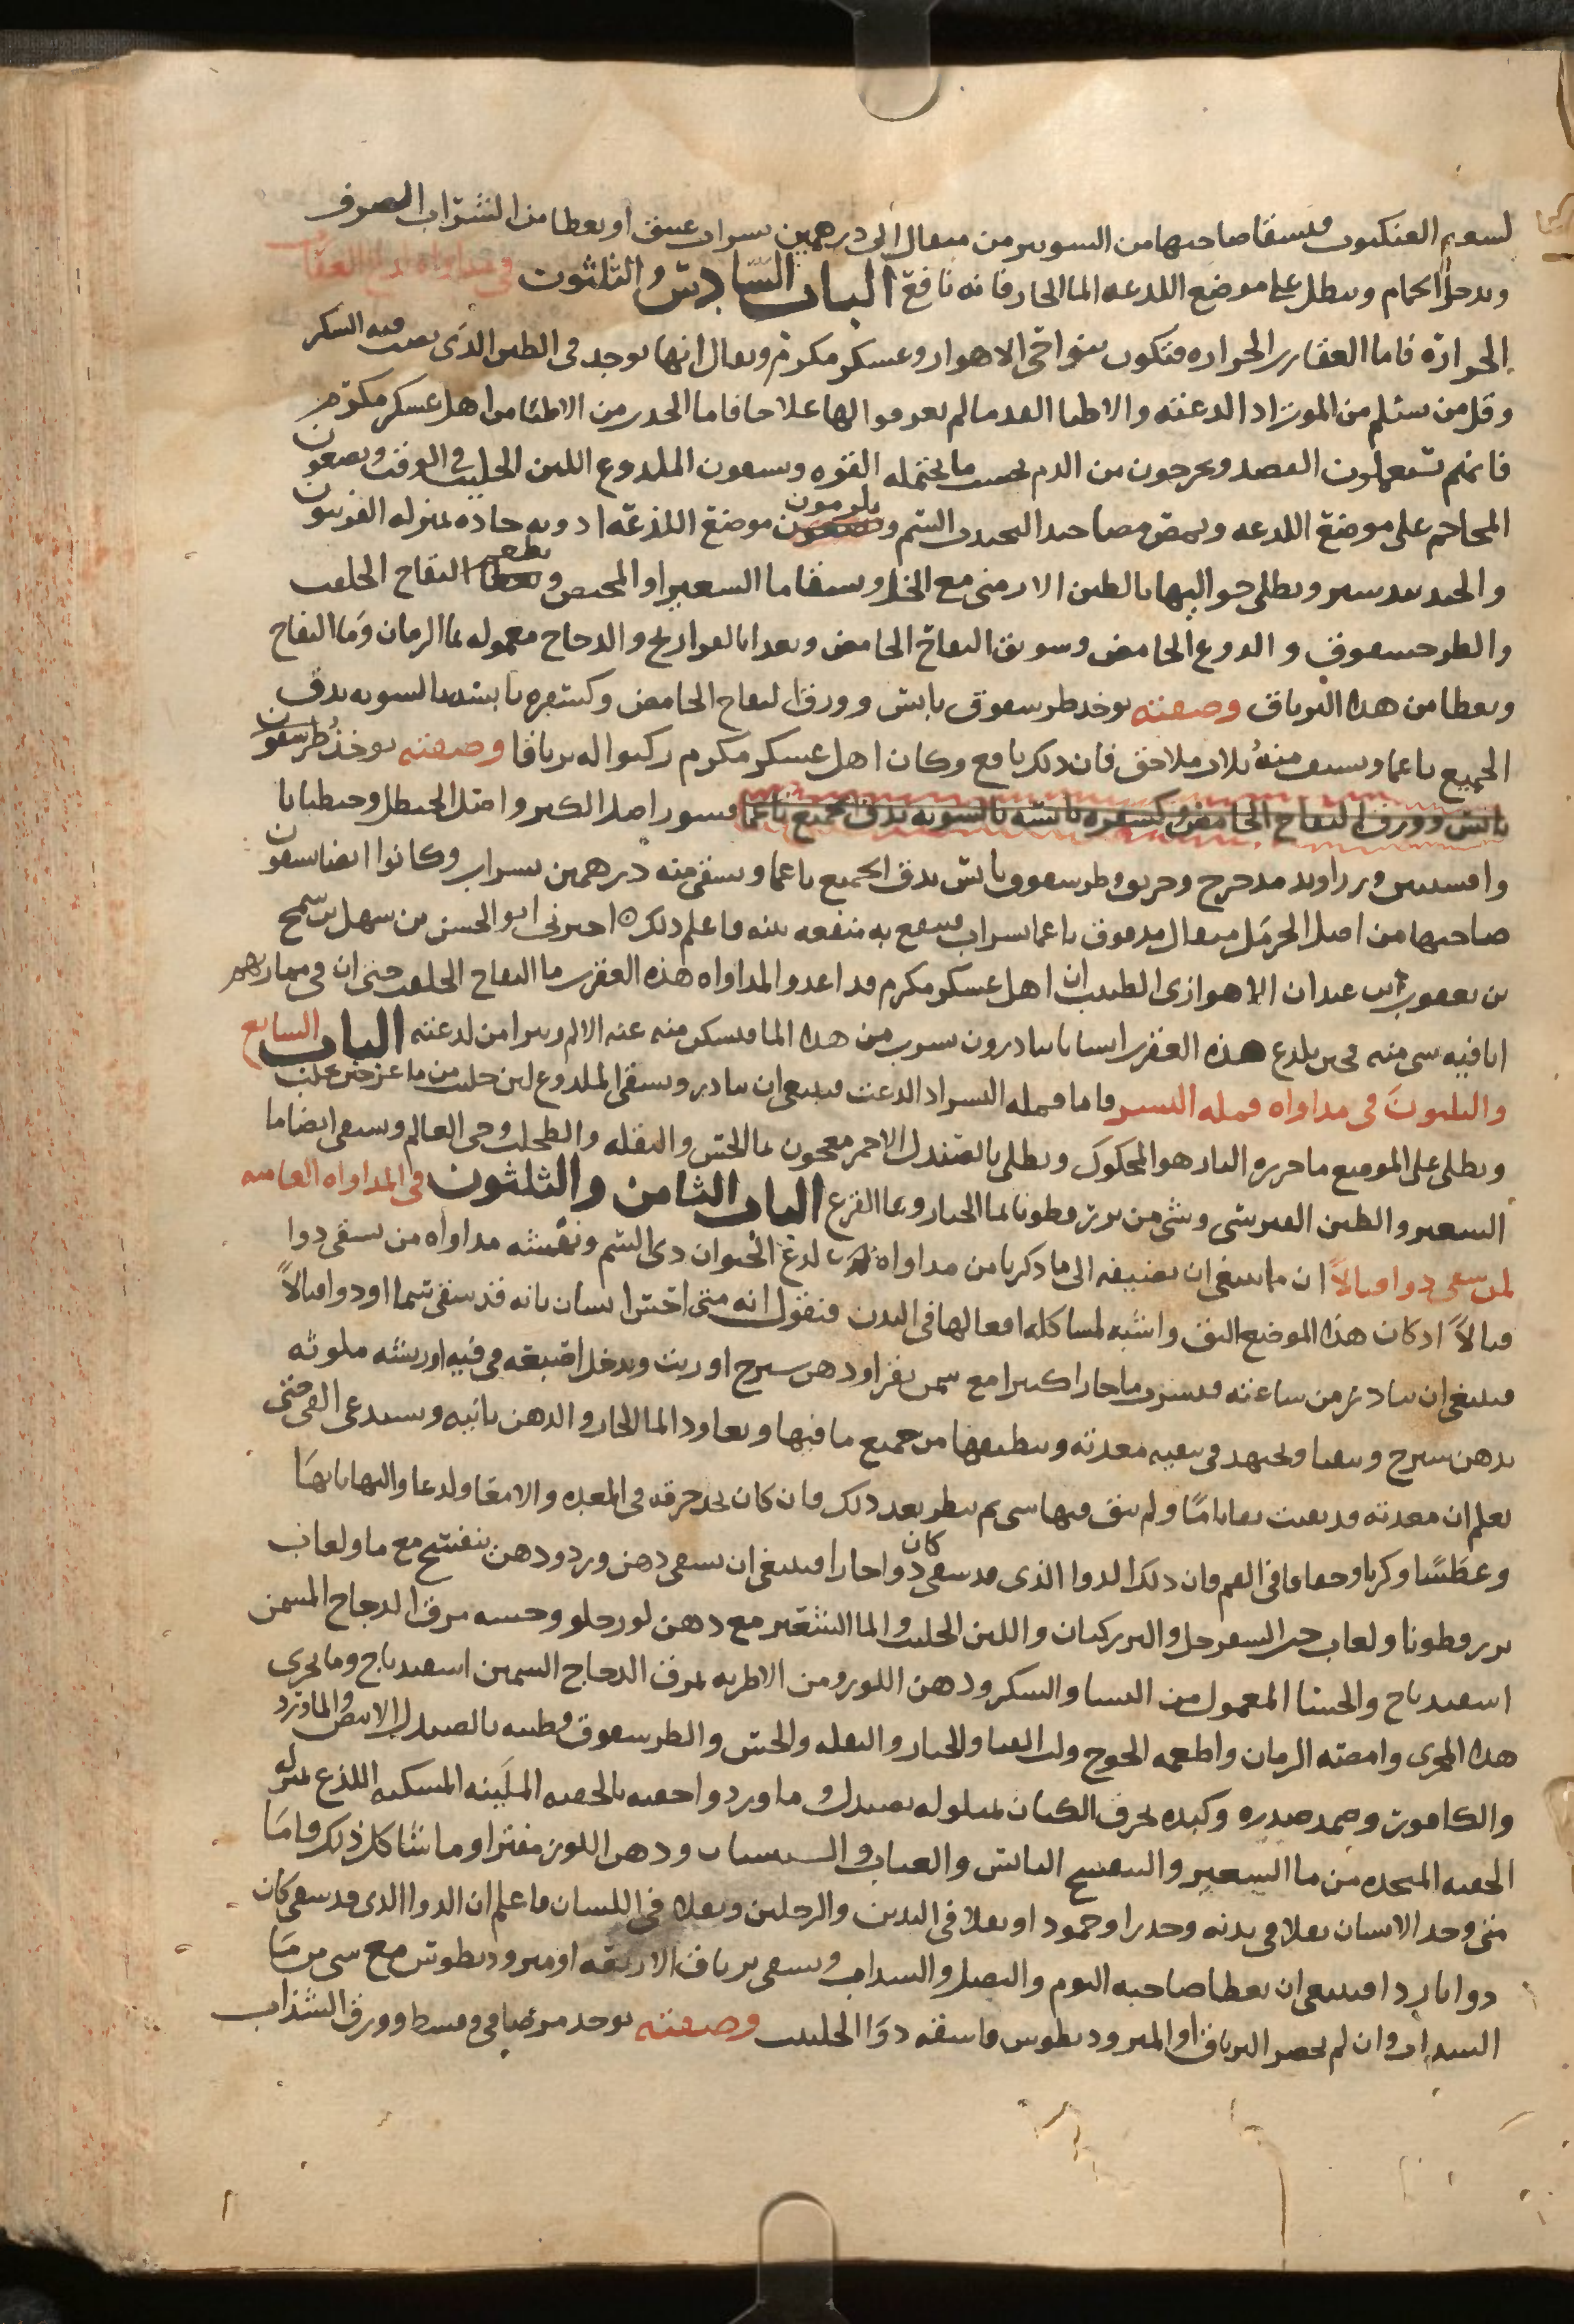 لسعه العنكبوت فيسقا صاحبها من السونيز من مثقال الى درهمين بشراب عتيق او يعطا من الشراب الصرف
ويدخل الحمام وينطل على موضع اللدعه الما الحار فانه نافع الباب السادس والثلثون في مداواة لدغ العقارب
الجرارة فاما العقارب الجراره فتكون بنواحي الاهواز وعسكر مكرم ويقال انها توجد في الطين الذي يصب فيه السكر
وقل من سلم من الموت اذا لدعته والاطبا القدما لم يعرفوا لها علاجا فاما الحدث من الاطبا من اهل عسكر مكرم
فانهم يستعملون الفصد ويخرجون من الدم بحسب ما يحتمله القوه ويسقون الملدوع اللبن الحليب في الوقت ويضعون
المحاجم على موضع اللدعه ويمص مصا جيدا ليجذب السم ويلزمون موضع اللذعه ادويه حاده بمنزله الفربيون
والجندبيدستر ويطلى حواليها بالطين الارمنى مع الخل ويسقا ما الشعير او المخيض ويطعم التفاح الحلو
والطرحشقوق والدوع الحامض وسويق التفاح الحامض ويغدا بالفراريج والدجاج معموله بما الرمان وما التفاح
ويعطا من هذا الترياق وصفته يوخد طرشقوق يابس وورق التفاح الحامض وكسبره يابسه بالسويه يدق
الجميع ناعما ويسف منه ثلاث ملاعق فان ذلك نافع وكان اهل عسكر مكرم ركبوا له ترياقا وصفته يوخذ طرشقوق
يابس وورق التفاح الحامض وكسفره يابسه بالسويه يدق الجميع ناعما قشور اصل الكبر واصل الحنظل وجنطيانا
وافسنتين وزراوند مدحرج وحربق وطرشقوق يابس يدق الجميع ناعما ويسقى منه درهمين بشراب وكانوا ايضا يسقون
صاحبها من اصل الحرمل مثقال مدقوق ناعما بشراب فينتفع به منفعه بينه فاعلم ذلك اخبرنى ابو الحسن بن سهل بن سمح
بن يعقوب بن عبدان الاهوازى الطبيب ان اهل عسكر مكرم قد اعدوا لمداواه هذه العقرب ما التفاح الحلو حتى ان في
انا فيه شى منه فمن يلدغ هذه العقرب انسانا يبادرون بشرب من هذا الما فيسكن منه عنه الالم ويبرا من لدعته الباب السابع
والثلثون فى مداواه قمله النسر فاما قمله النسر اذا لدعت فينبغى ان يبادر ويسقى الملدوع لبن حليب من ما عز حين يحلب
ويطلى على الموضع ما حريره البادزهر المحكوك ويطلى بالصندل الاحمر معجون بما الخس والبقله والطحلب وحى العالم ويسقى ايضا ما
الشعير والطين القبرسى وشى من بزر قطونا بما الخيار وبما القرع الباب الثامن والثلثون فى المداواه العاميه
لمن سقى دوا قتالاً ان ما ينبغى ان نضيفه الى ما ذكرنا من مداواه لدغ الحيوان ذى السم ونهشه مداواه من يسقى دوا
قتالاً اذ كان هذا الموضع اليق واشبه لمشاكله افعالها فى البدن فنقول انه متى احس انسان بانه قد سقى سما او دوا قتالاً
فينبغى ان يبادر من ساعته فيشرب ما حارا كثيرا مع سمن بقر او دهن سيرج او زيت ويدخل اصبعه فى فيه او ريشه ملوثه
بدهن سيرج ويتقيا ويجتهد فى تنقيه معدته وينظفها من جميع ما فيها ويعاود الما الحار والدهن ثانيه ويستدعى القى حتى
يعلم ان معدته قد نقيت نقا تاما ولم يبق فيها شى ثم ينظر بعد ذلك فان كان يجد حرقه فى المعده والامعا ولدعا والتهابا بها
وعطشا وكربا وجفافا فى الفم فان ذلك الدوا الذى قد سقى كان دوا حارا فينبغى ان يسقى دهن ورد ودهن بنفسج مع ما ولعاب
بزر قطونا ولعاب حب السفرجل والبزركتان واللبن الحليب والما الشعير مع دهن لوز حلو وحسه مرق الدجاج المسمن
اسفيدباج والحسا المعمول من النشا والسكر ودهن اللوز ومن الاطريه بمرق الدجاج السمين اسفيدباج وما يجرى
هذا المجرى وامصه الرمان واطعمه الخوج ولب القثا والخيار والبقله والخس والطرشقوق وطيبه بالصندل الابيض والماورد
والكافور وضمد صدره وكبده بخرق الكتان مبلوله بصندل وما ورد واحقنه بالحقنه الملينه المسكنه اللذع بمنزله
الحقنه المتخده من ما الشعير والبنفسج اليابس والعناب والسبستان ودهن اللوز مفترا وما شاكل ذلك فاما
متى وجد الانسان ثقلا فى بدنه وخدرا وجمود او ثقلا فى اليدين والرجلين وثقلا فى اللسان فاعلم ان الدوا الدى قد سقى كان
دوا باردا فينبغى ان يعطا صاحبه الثوم والبصل والسداب ويسقى ترياق الاربعه او مثروديطوس مع شى من ما
السداب وان لم يحضر الترياق او المثروديطوس فاسقه دوا الحلتيت وصفته يوخد مر صافى وقسط وورق السذاب